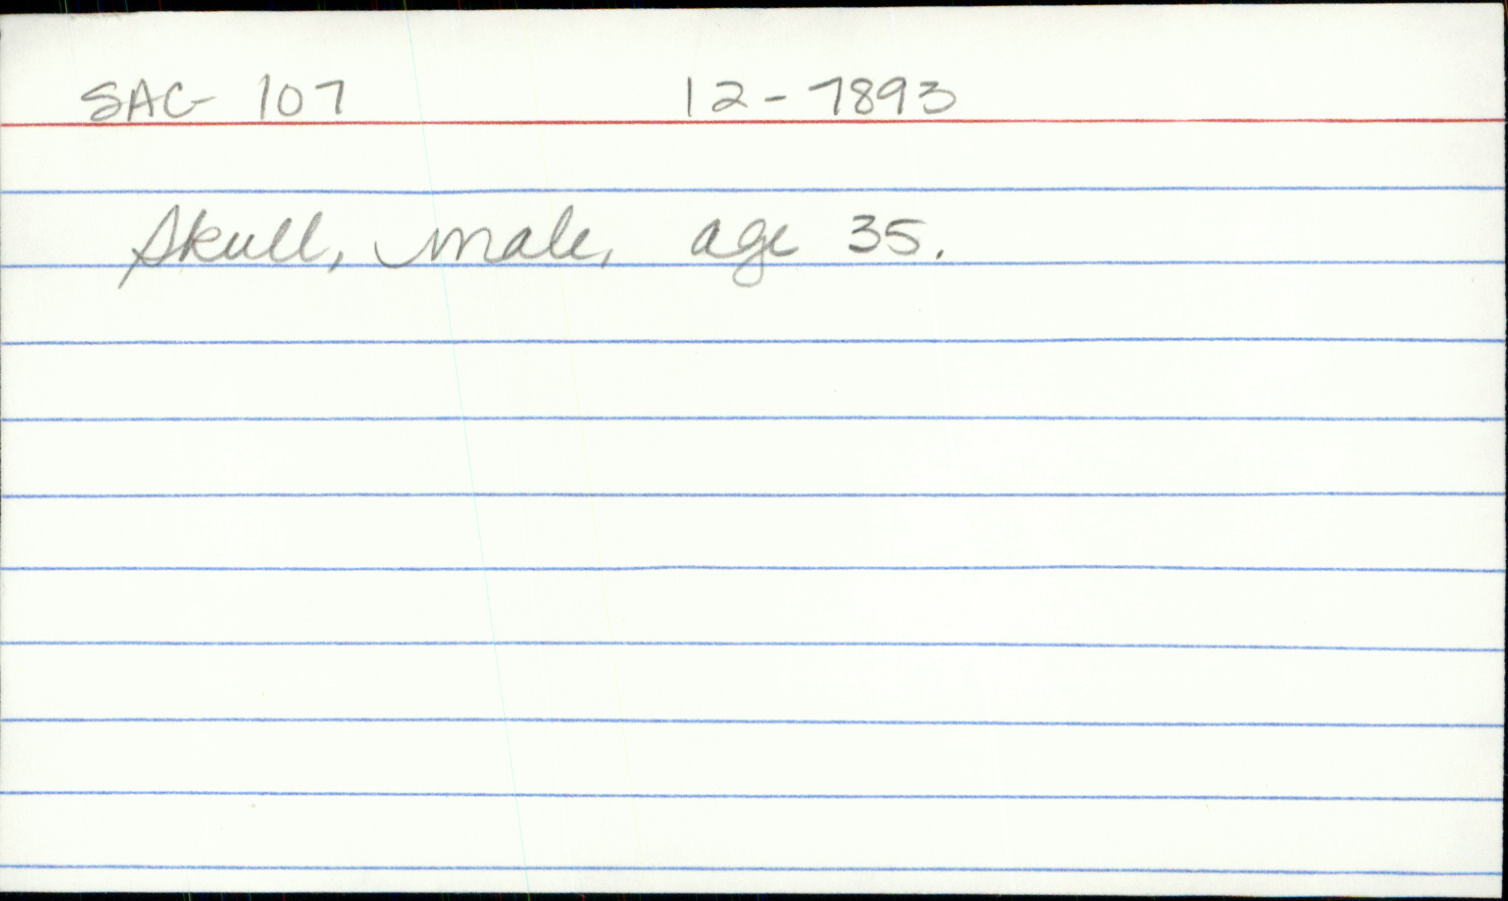 SAC-107 12-7893
Skull, male, age 35.